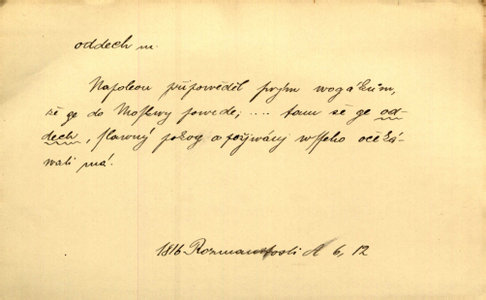 oddech m.
Napoleon připoweděl prým wogákům,
že ge do Moskwy powede; .... tam že ge od-
dech, slawný pokog a požíwánj wsseho očeká-
wati má.
1816 Rozmanitosti A 6, 12